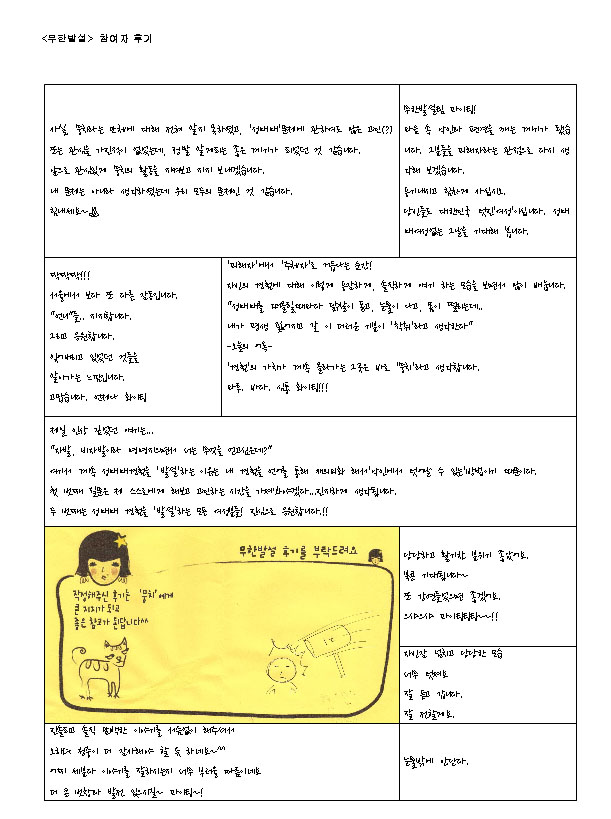 <무한발설> 참여자 후기
사실, 뭉치라는 단체에 대해 전혀 알지 못하였고, '성매매'문제에 관하여도 많은 고민(?)
또는 관심을 가진적이 없었는데, 정말 알게되는 좋은 계기가 되었던 것 같습니다.
앞으로 관심있게 뭉치의 활동을 지켜보고 지지 보내겠습니다.
내 문제는 아니라 생각하였는데 우리 모두의 문제인 것 같습니다.
힘내세요~
무한발설팀 파이팅!
마음 속 낙인과 편견을 깨는 계기가 됐습
니다. 그분들을 피해자라는 관점으로 다시 생
각해 보겠습니다.
용기내시고 힘차게 사십시오.
당신들도 대한민국 멋진'여성'이십니다. 성매
매여성없는 그날을 기대해 봅니다.
짝짝짝!!!
서울에서 보다 또 다른 감동입니다.
"언니"들.. 지지합니다.
그리고 응원합니다.
잊어버리고 있었던 것들을
알아가는 느낌입니다.
고맙습니다. 언제나 화이팅
'피해자'에서 '주체자'로 거듭나는 순간!
자신의 경험에 대해 이렇게 당당하게, 솔직하게 얘기 하는 모습을 보면서 많이 배웁니다.
"성매매를 떠올릴때마다 닭살이 돋고, 눈물이 나고, 몸이 떨리는데..
내가 평생 짊어지고 갈 이 더러운 기분이 '착취'라고 생각한다"
-오늘의 어록-
'경험'의 가치가 계속 올라가는 그곳은 바로 '뭉치'라고 생각합니다.
하루, 바다, 심통 화이팅!!!
제일 인상 깊었던 얘기는...
"자발, 비자발이라 명명지으면서 너는 무엇을 얻고싶은데?"
여기서 계속 성매매경험을 '발설'하는 이유는 내 경험을 언어를 통해 재의미화 해서'낙인에서 벗어날 수 있는'방법이기 때문이다.
첫 번째 질문은 제 스스로에게 해보고 고민하는 시간을 가져봐야겠다...진지하게 생각됩니다.
두 번째는 성매매 경험을 '발설'하는 모든 여성들을! 진심으로 응원합니다.!!
무한발설 후기를 부탁드려요
작성해주신 후기는 '뭉치'에게
큰 지지가 되고
좋은 참고가 된답니다^^
당당하고 활기찬 분위기 좋았어요.
북콘 기대됩니다~
또 강연들었으면 좋겠어요.
으샤으샤 파이팅팅팅~~!!
자신감 넘치고 당당한 모습
너무 멋져요
잘 듣고 갑니다.
잘 전할게요.
진솔되고 솔직 담백한 이야기를 서슴없이 해주셔서
오히려 청중이 더 감사해야 할 듯 하네요~^^
어찌 세분다 이야기를 잘하시는지 너무 부러울 따름이네요
더 큰 번창과 발전 있으시길~ 파이팅~!
눈물밖에 안난다.